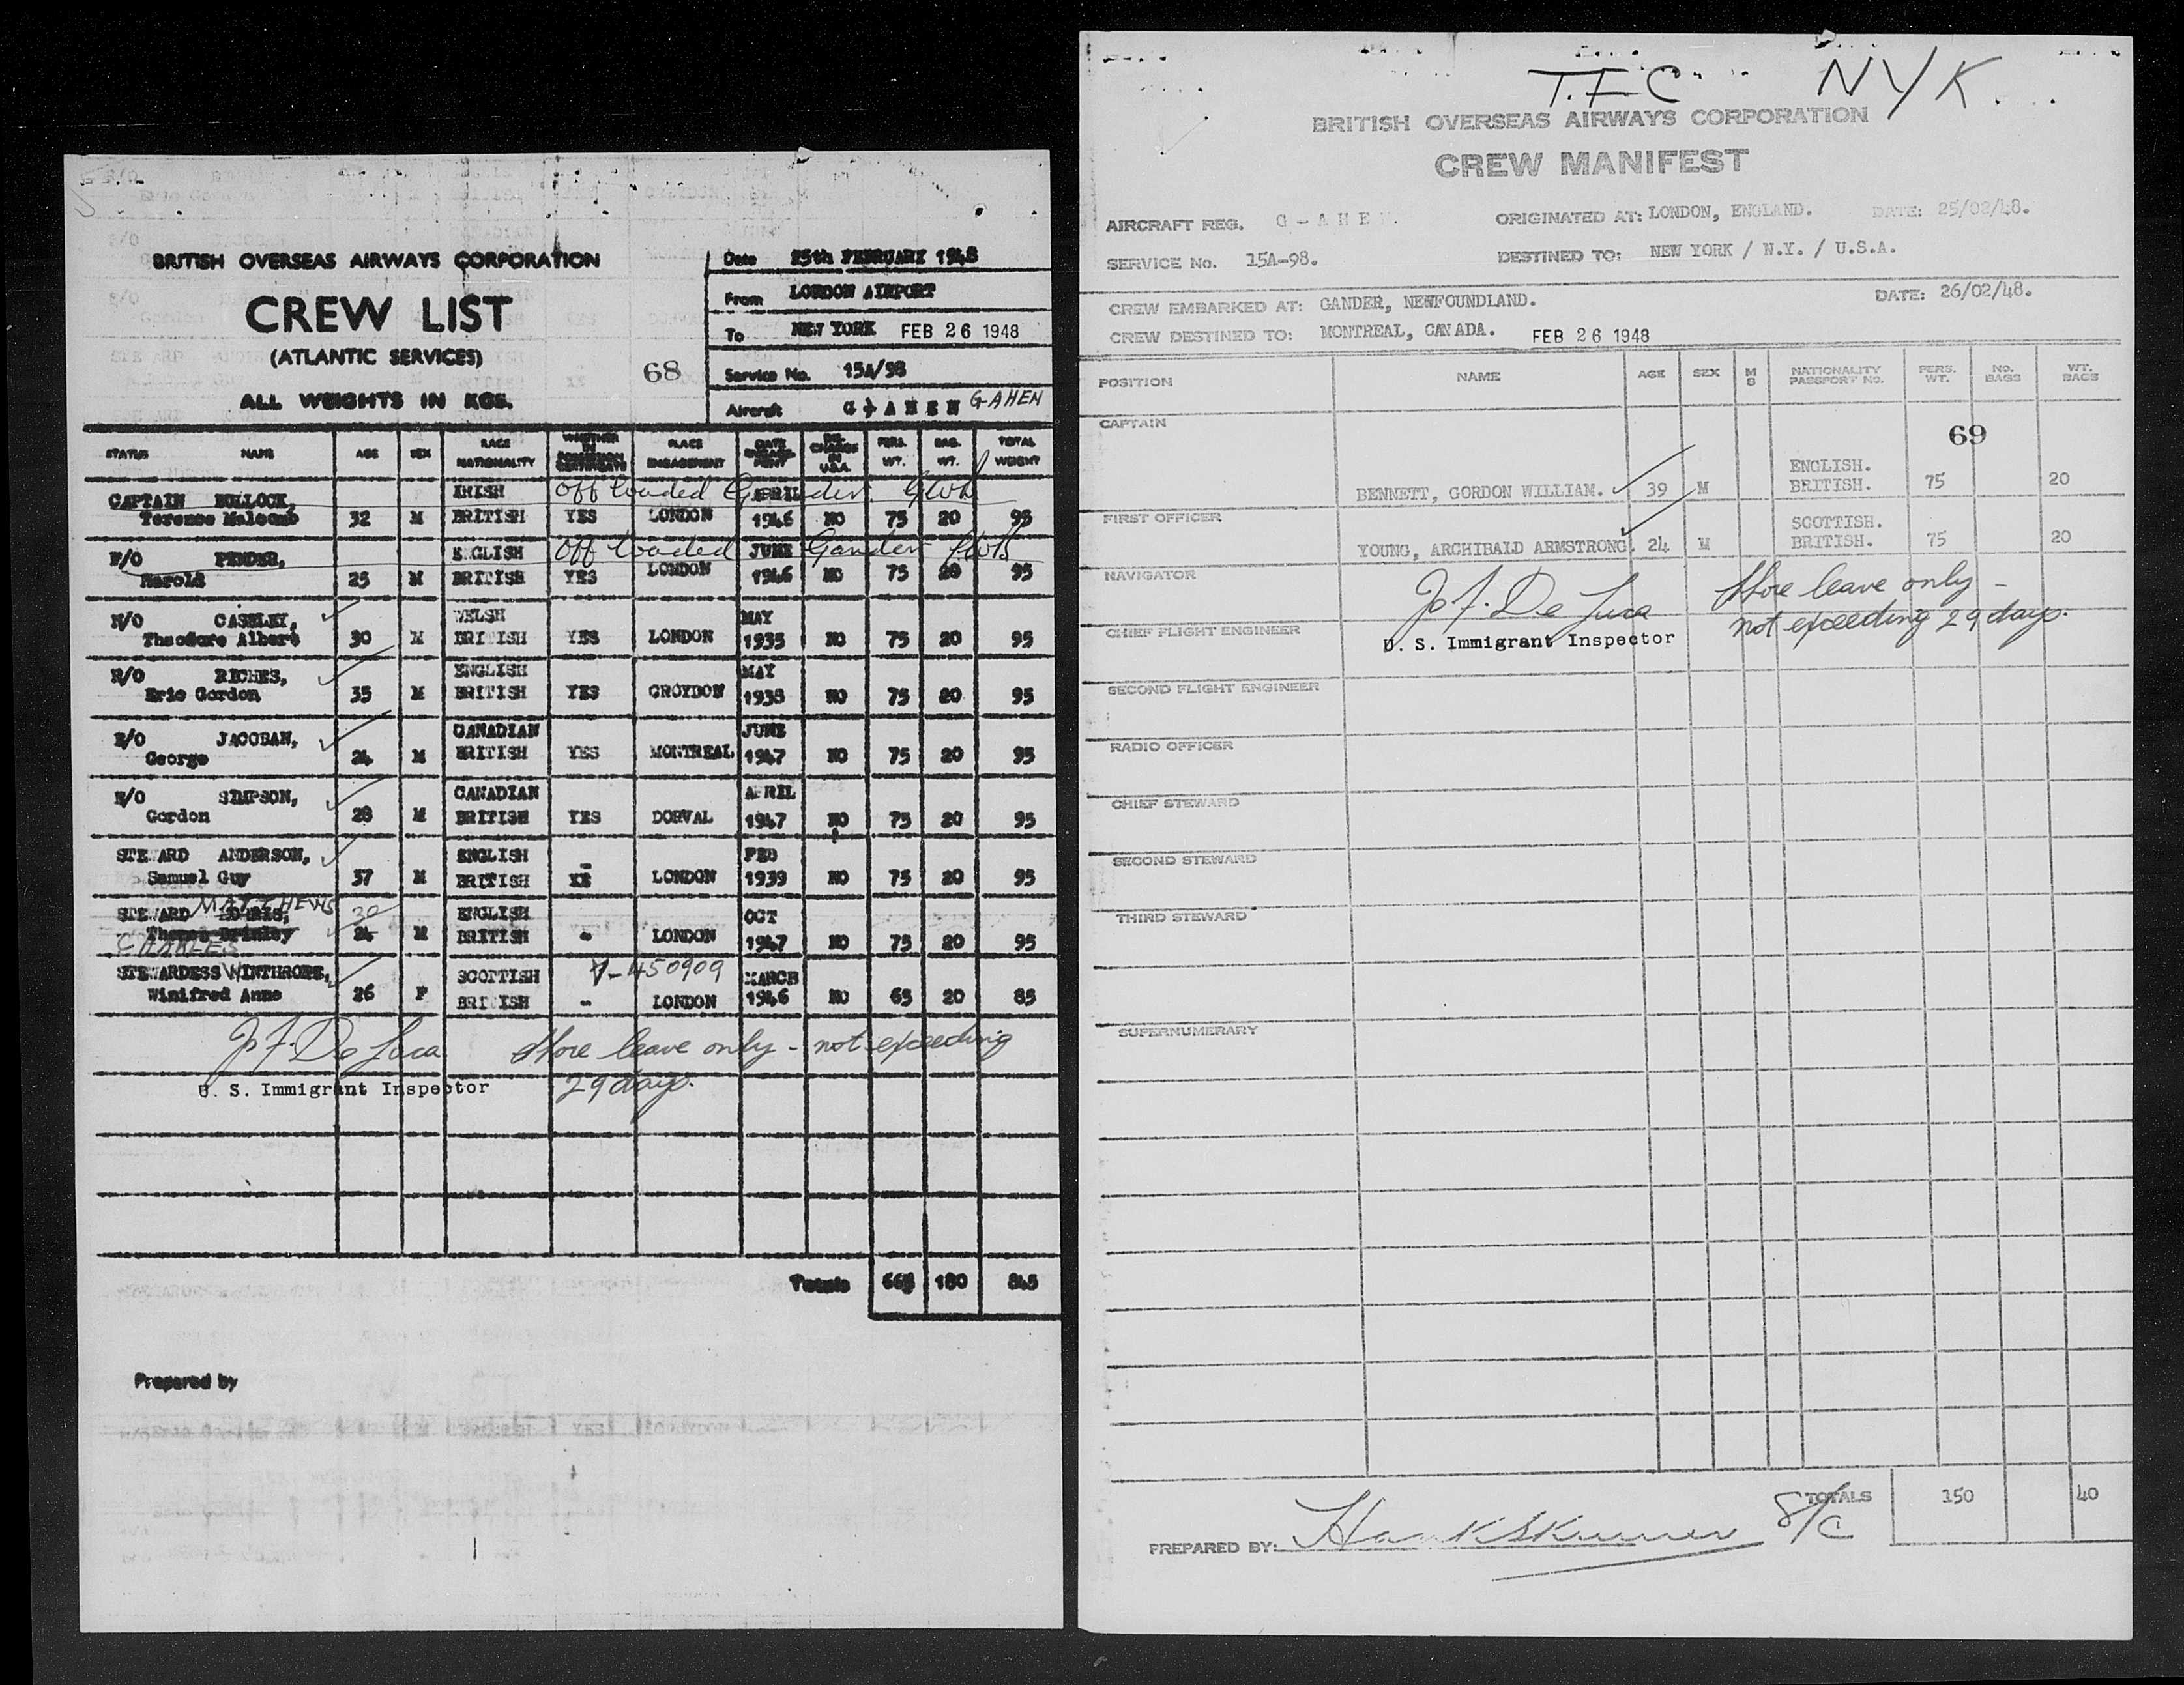 BRITISH OVERSEAS AIRWAYS CORPORATION
CREW LIST
(ATLANTIC SERVICES)
ALL WEIGHTS IN KGS.
68
Date 25th FEBRUARY 1948
From LONDON AIRPORT
To NEW YORK FEB 26 1948
Service No. 15A/98
Aircraft G-AHEN G-AHEN
STATUS NAME AGE SEX RACE NATIONALITY WHETHER IN POSSESSION CERTIFICATE PLACE ENGAGEMENT DATE ENGAGEMENT DISCHARGE IN U.S.A. PERS. WT. BAG. WT. TOTAL WEIGHT
CAPTAIN BULLOCK, IRISH Off loaded Gander APRIL
Terence Malcomb 32 M BRITISH YES LONDON 1946 NO 75 20 95
F/O PENDER, ENGLISH Off loaded Gander JUNE
Harold 25 M BRITISH YES LONDON 1946 NO 75 20 95
N/O CASELEY, WELSH MAY
Theodore Albert 30 M BRITISH YES LONDON 1935 NO 75 20 95
R/O RICHES, ENGLISH MAY
Eric Gordon 35 M BRITISH YES CROYDON 1938 NO 75 20 95
JACOBAN, CANADIAN JUNE
George 24 M BRITISH YES MONTREAL 1947 NO 75 20 95
SIMPSON, CANADIAN APRIL
Gordon 28 M BRITISH YES DORVAL 1947 NO 75 20 95
STEWARD ANDERSON, ENGLISH FEB
Samuel Guy 37 M BRITISH LONDON 1939 NO 75 20 95
STEWARD MATTHEWS 30 ENGLISH OCT
Thomas Brinley 24 M BRITISH - LONDON 1947 NO 75 20 95
CHARLES
STEWARDESS WINTHROPE, SCOTTISH V-450909 MARCH
Winifred Anne 26 F BRITISH - LONDON 1946 NO 65 20 85
Jo F. De Luca Shore leave only - not exceeding
U. S. Immigrant Inspector 29 days.
Totals 665 180 845
Prepared by
T.E.C. NYK
BRITISH OVERSEAS AIRWAYS CORPORATION
CREW MANIFEST
AIRCRAFT REG. G-AHEN. ORIGINATED AT: LONDON, ENGLAND. DATE: 25/02/48.
SERVICE No. 15A-98. DESTINED TO: NEW YORK / N.Y. / U.S.A.
CREW EMBARKED AT: GANDER, NEWFOUNDLAND. DATE: 26/02/48.
CREW DESTINED TO: MONTREAL, CANADA. FEB 26 1948
POSITION NAME AGE SEX M S NATIONALITY PASSPORT No. PERS. WT. NO. BAGS WT. BAGS
CAPTAIN 69
ENGLISH.
BENNETT, GORDON WILLIAM. 39 M BRITISH. 75 20
FIRST OFFICER SCOTTISH.
YOUNG, ARCHIBALD ARMSTRONG. 24 M BRITISH. 75 20
NAVIGATOR
Jo F. De Luca Shore leave only -
not exceeding 29 days.
CHIEF FLIGHT ENGINEER U. S. Immigrant Inspector
SECOND FLIGHT ENGINEER
RADIO OFFICER
CHIEF STEWARD
SECOND STEWARD
THIRD STEWARD
SUPERNUMERARY
TOTALS 150 40
PREPARED BY: S/C